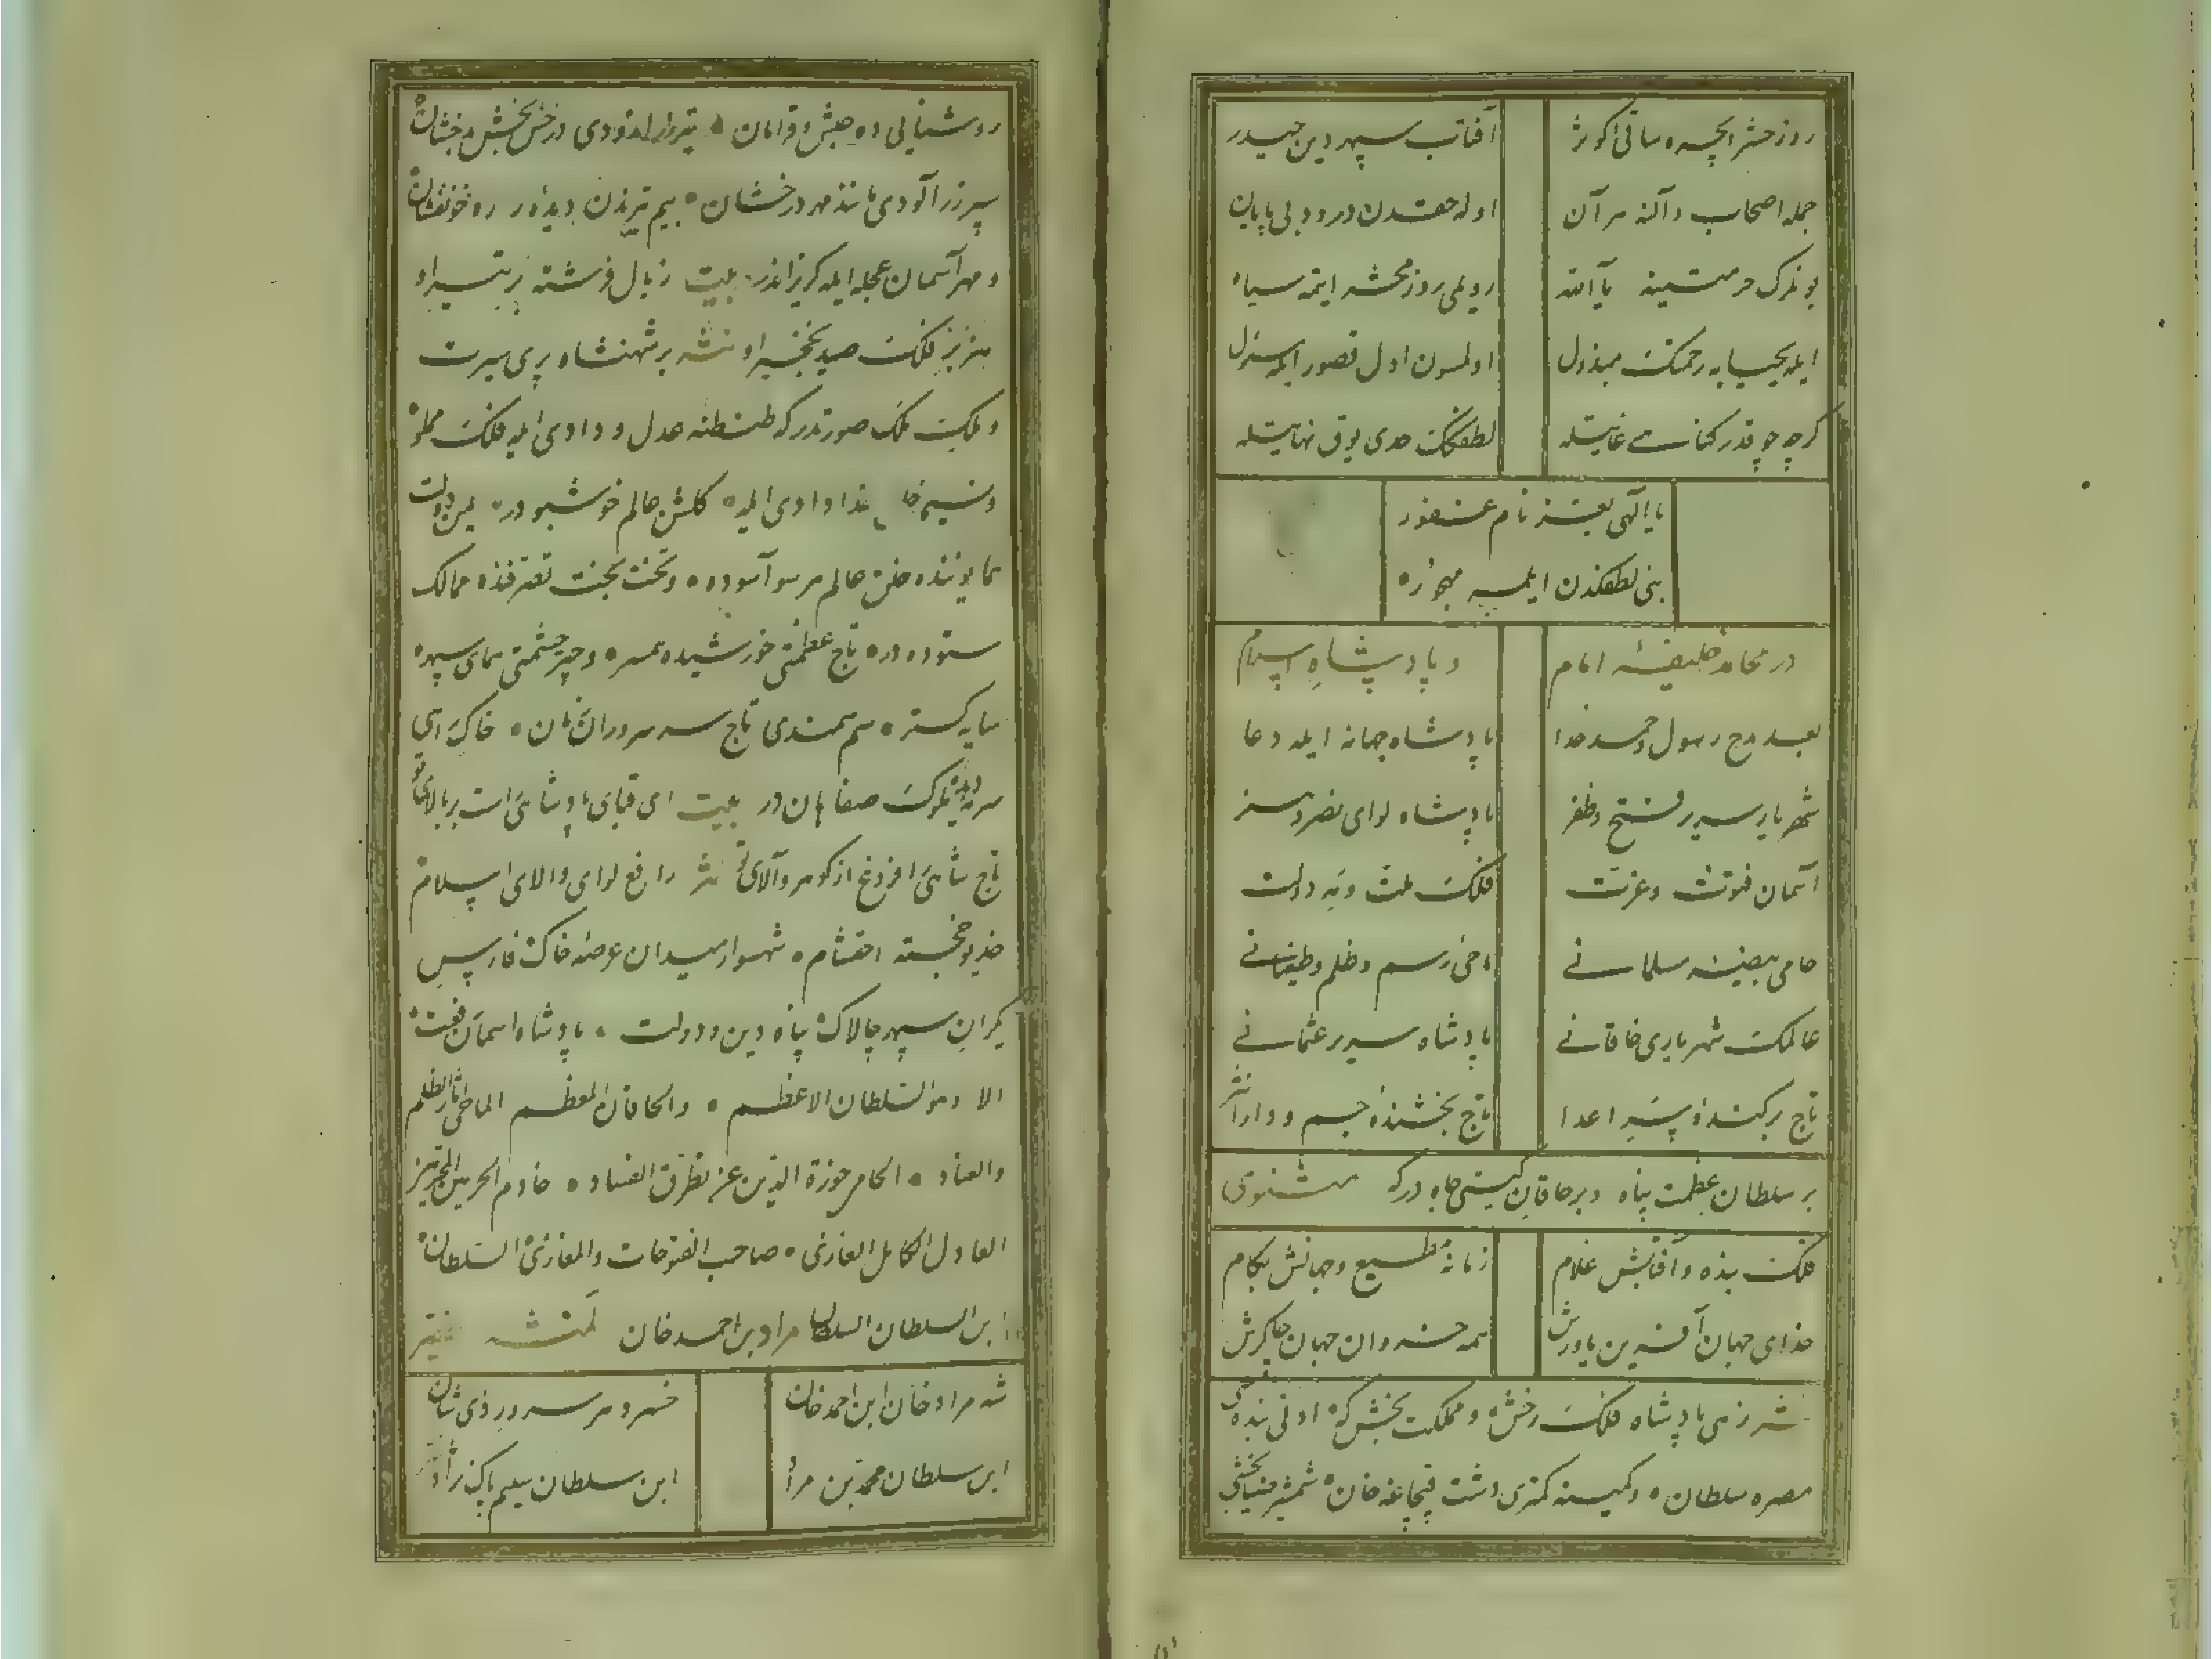 روز حشر ایچره ساقئ کوثر آفتاب سپهر دین حیدر
جمله اصحاب و آلنه هر آن اوله حقدن درود بی پایان
بونلرک حرمتینه یا الله رویمی روز محشر ایتمه سیاه
ایله یحیایه رحمتک مبذول اولمسون اول قصور ایله
کرچه چوقدر کناسی غایتله لطفکک حدی یوق نهایتله
یا الهی بعزّ نام غفور
بنی لطفکدن ایلمه مهجور
در محامد خلیفهٔ امام و پادشاهِ اسلام
بعد مدح رسول و حمد خدا پادشاه جهانه ایله دعا
شهریار سریر فتح و ظفر پادشاه لوای نصر و
آسمان فتوّت و عزّت فلک ملّت و مه دولت
حامی بیضهٔ مسلمانی ماحئ رسم و ظلم و طغیانی
عالمک شهریاری خاقانی پادشاه سریر عثمانی
تاج برکندهٔ سرِ اعدا تاج بخشندهٔ جم و دارا نثر
بر سلطان عظمت پناه و بر خاقانِ کیتی جاه درکه مثنوی
فلک بنده و آفتابش غلام زمانه مطیع و جهانش بکام
خدای جهان آفرین یاورش همه خسروان جهان چاکرش
نثر زهی پادشاه فلک رخش و مملکت بخش که ادنی بنده سی
مصره سلطان و کمینه کمتری دشت قپچاغه خان شمشیر
روشنایی ده جیش و
سپر زر آلودی مانند مهر درخشان بیم تیرندن دیده
و مهر آسمان عجله ایله کریزاندر بیت ز بال فرشته پر تیر او
هزبر فلک صید نخجیر او نثر بر شهنشاه پری سیرت
و ملک صورتدر که طنطنه عدل و دادی ایله فلک مملو
و نسیم دادی ایله کلشن عالم خوشبودر یمن دولت
خلق عالم هر سو آسوده و تخت بخت تصرفنده ممالک
ستوده در تاج عظمتی خورشیده همسر و چتر حشمتی همای سپهره
سایه کستر سم سمندی تاج سر سروران زمان خاک
ملوک صفاهان در بیت ای قبای پادشاهی راست بر بالای تو
تاج شاهی را فروغ از کوهر والای تو نثر رافع لوای والای اسلام
خدیو خجسته احتشام شهسوار میدان عرصهٔ خاک فارس
یکران سپهر چالاک پناه دین و دولت پادشاه آسمان رفعت
الا و هو السّلطان الاعظم و الخاقان المعظم الماحی آثار الظلم
والعناد الحامی حوزة الدّین عن تطرّق الفساد خادم الحرمین المحترمین
العادل الکامل الغازی صاحب الفتوحات و المغازی السّلطان
ابن السلطان السلطان مراد بن احمد خان لمنشئه
شه مراد خان ابن احمد خان خسرو هر سرور ذی شان
ابن سلطان محمد بن مراد ابن سلطان سلیم پاک نژاد